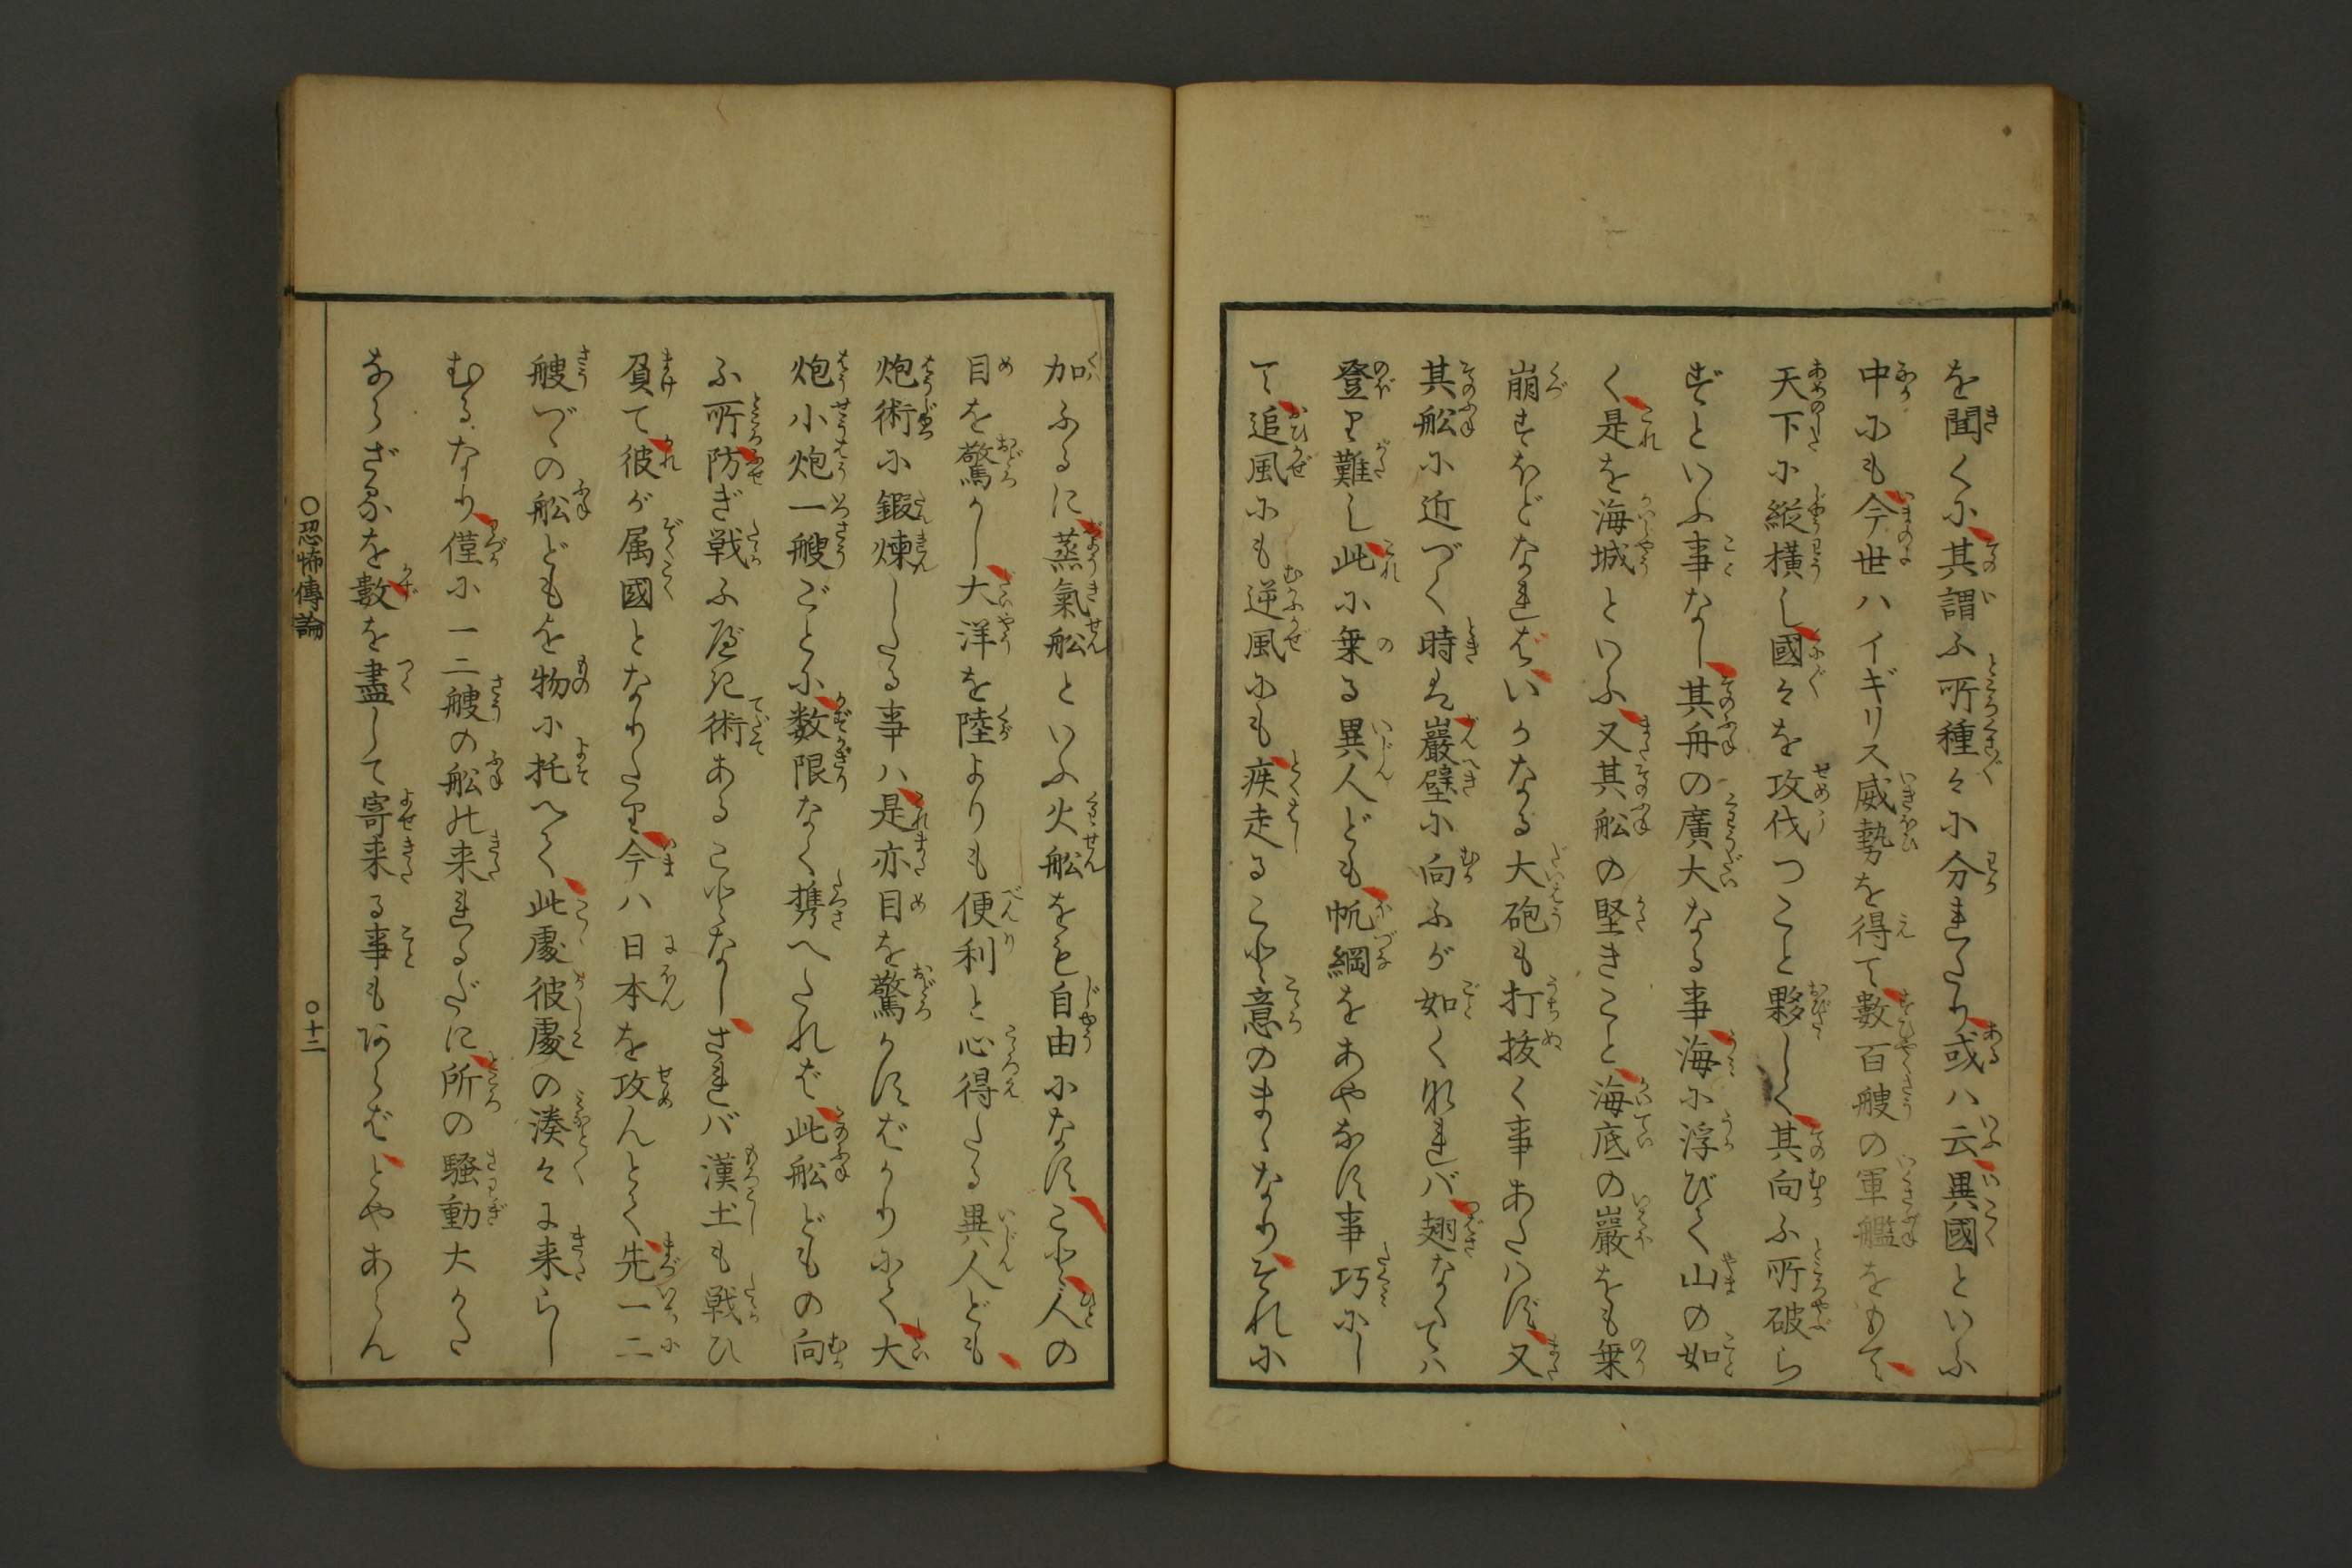 を聞くに其謂ふ所種々に分れたり或ハ云異國といふ
中にも今世ハイギリス威勢を得て數百艘の軍艦をもて
天下に縦横し國々を攻伐つこと夥しく其向ふ所破ら
ずといふ事なし其舟の廣大なる事海に浮びて山の如
く是を海城といふ又其舩の堅きこと海底の巌をも乗
崩すほどなれバいかなる大砲も打抜く事あたハず又
其舩に近づく時ハ巌壁に向ふが如くなれバ翅なくてハ
登り難し此に乗る異人ども帆綱をあやなす事巧にし
て追風にも逆風にも疾走ること意のまゝなりそれに
加ふるに蒸氣舩といふ火舩をも自由になすこと人の
目を驚かし大洋を陸よりも便利と心得たる異人ども
炮術に鍛煉したる事ハ是亦目を驚かすばかりにて大
炮小炮一艘ごとに数限なく携へたれば此舩どもの向
ふ所防ぎ戦ふべき術あることなしされバ漢土も戦ひ
負て彼が属國となりたり今ハ日本を攻んとて先一二
艘づゝの舩どもを物に托へて此處彼處の湊々に来らし
むるなり僅に一二艘の舩の来れるだに所の騒動大かた
ならざるを數を盡して寄来る事もあらばとやあらん
○恐怖傳論
○十二